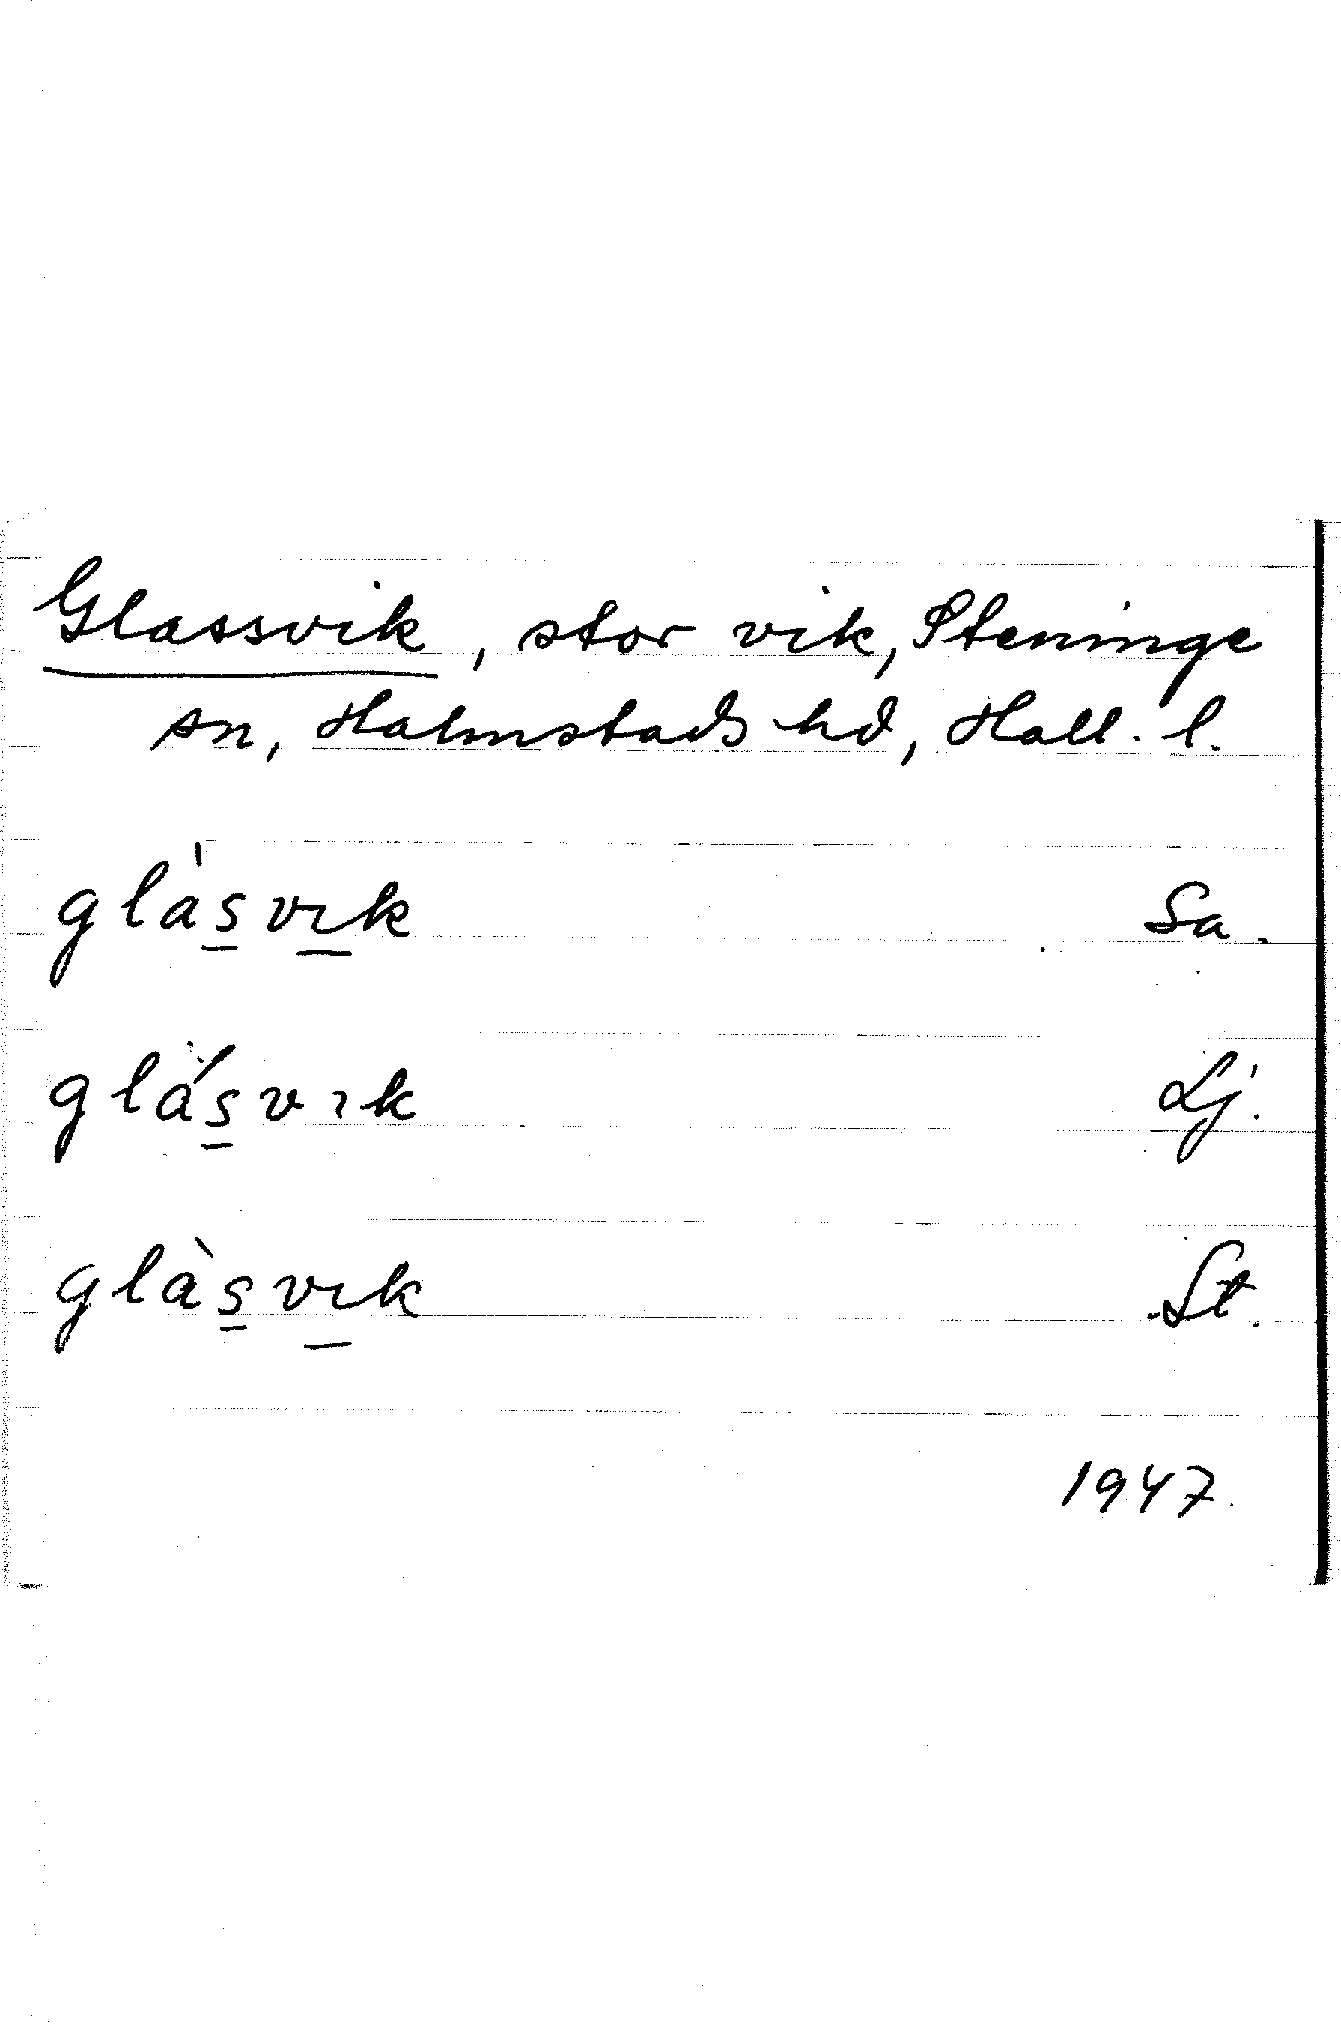 Glassvik, stor vik, Steninge
sn, Halmstads hd, Hall. l.
glàs̲vı̲k Sa.
glás̲vık Lj.
glàs̲vı̲k St.
1947.